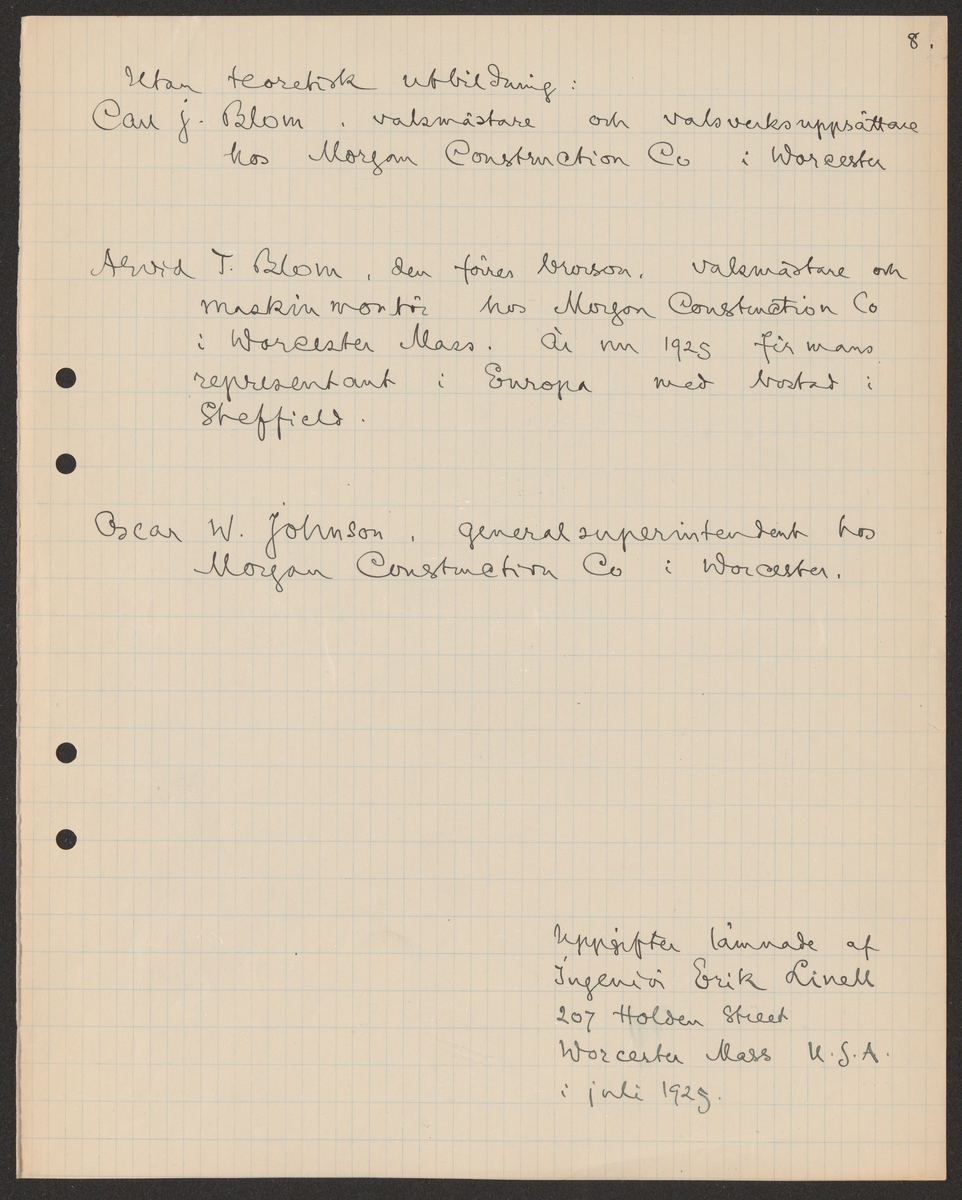 8.
Utan teoretisk utbildning:
Carl J. Blom, valsmästare och valsverksuppsättare
hos Morgan Construction Co i Worcester
Arvid T. Blom, den förres brorson, valsmästare och
maskinmontör hos Morgan Construction Co
i Worcester Mass. Är nu 1925 firmans
representant i Europa med bostad i
Sheffield.
Oscar W. Johnson, generalsuperintendent hos
Morgan Construction Co i Worcester.
Uppgifter lämnade af
Ingeniör Erik Linell
207 Holden Street
Worcester Mass U.S.A.
i juli 1925.